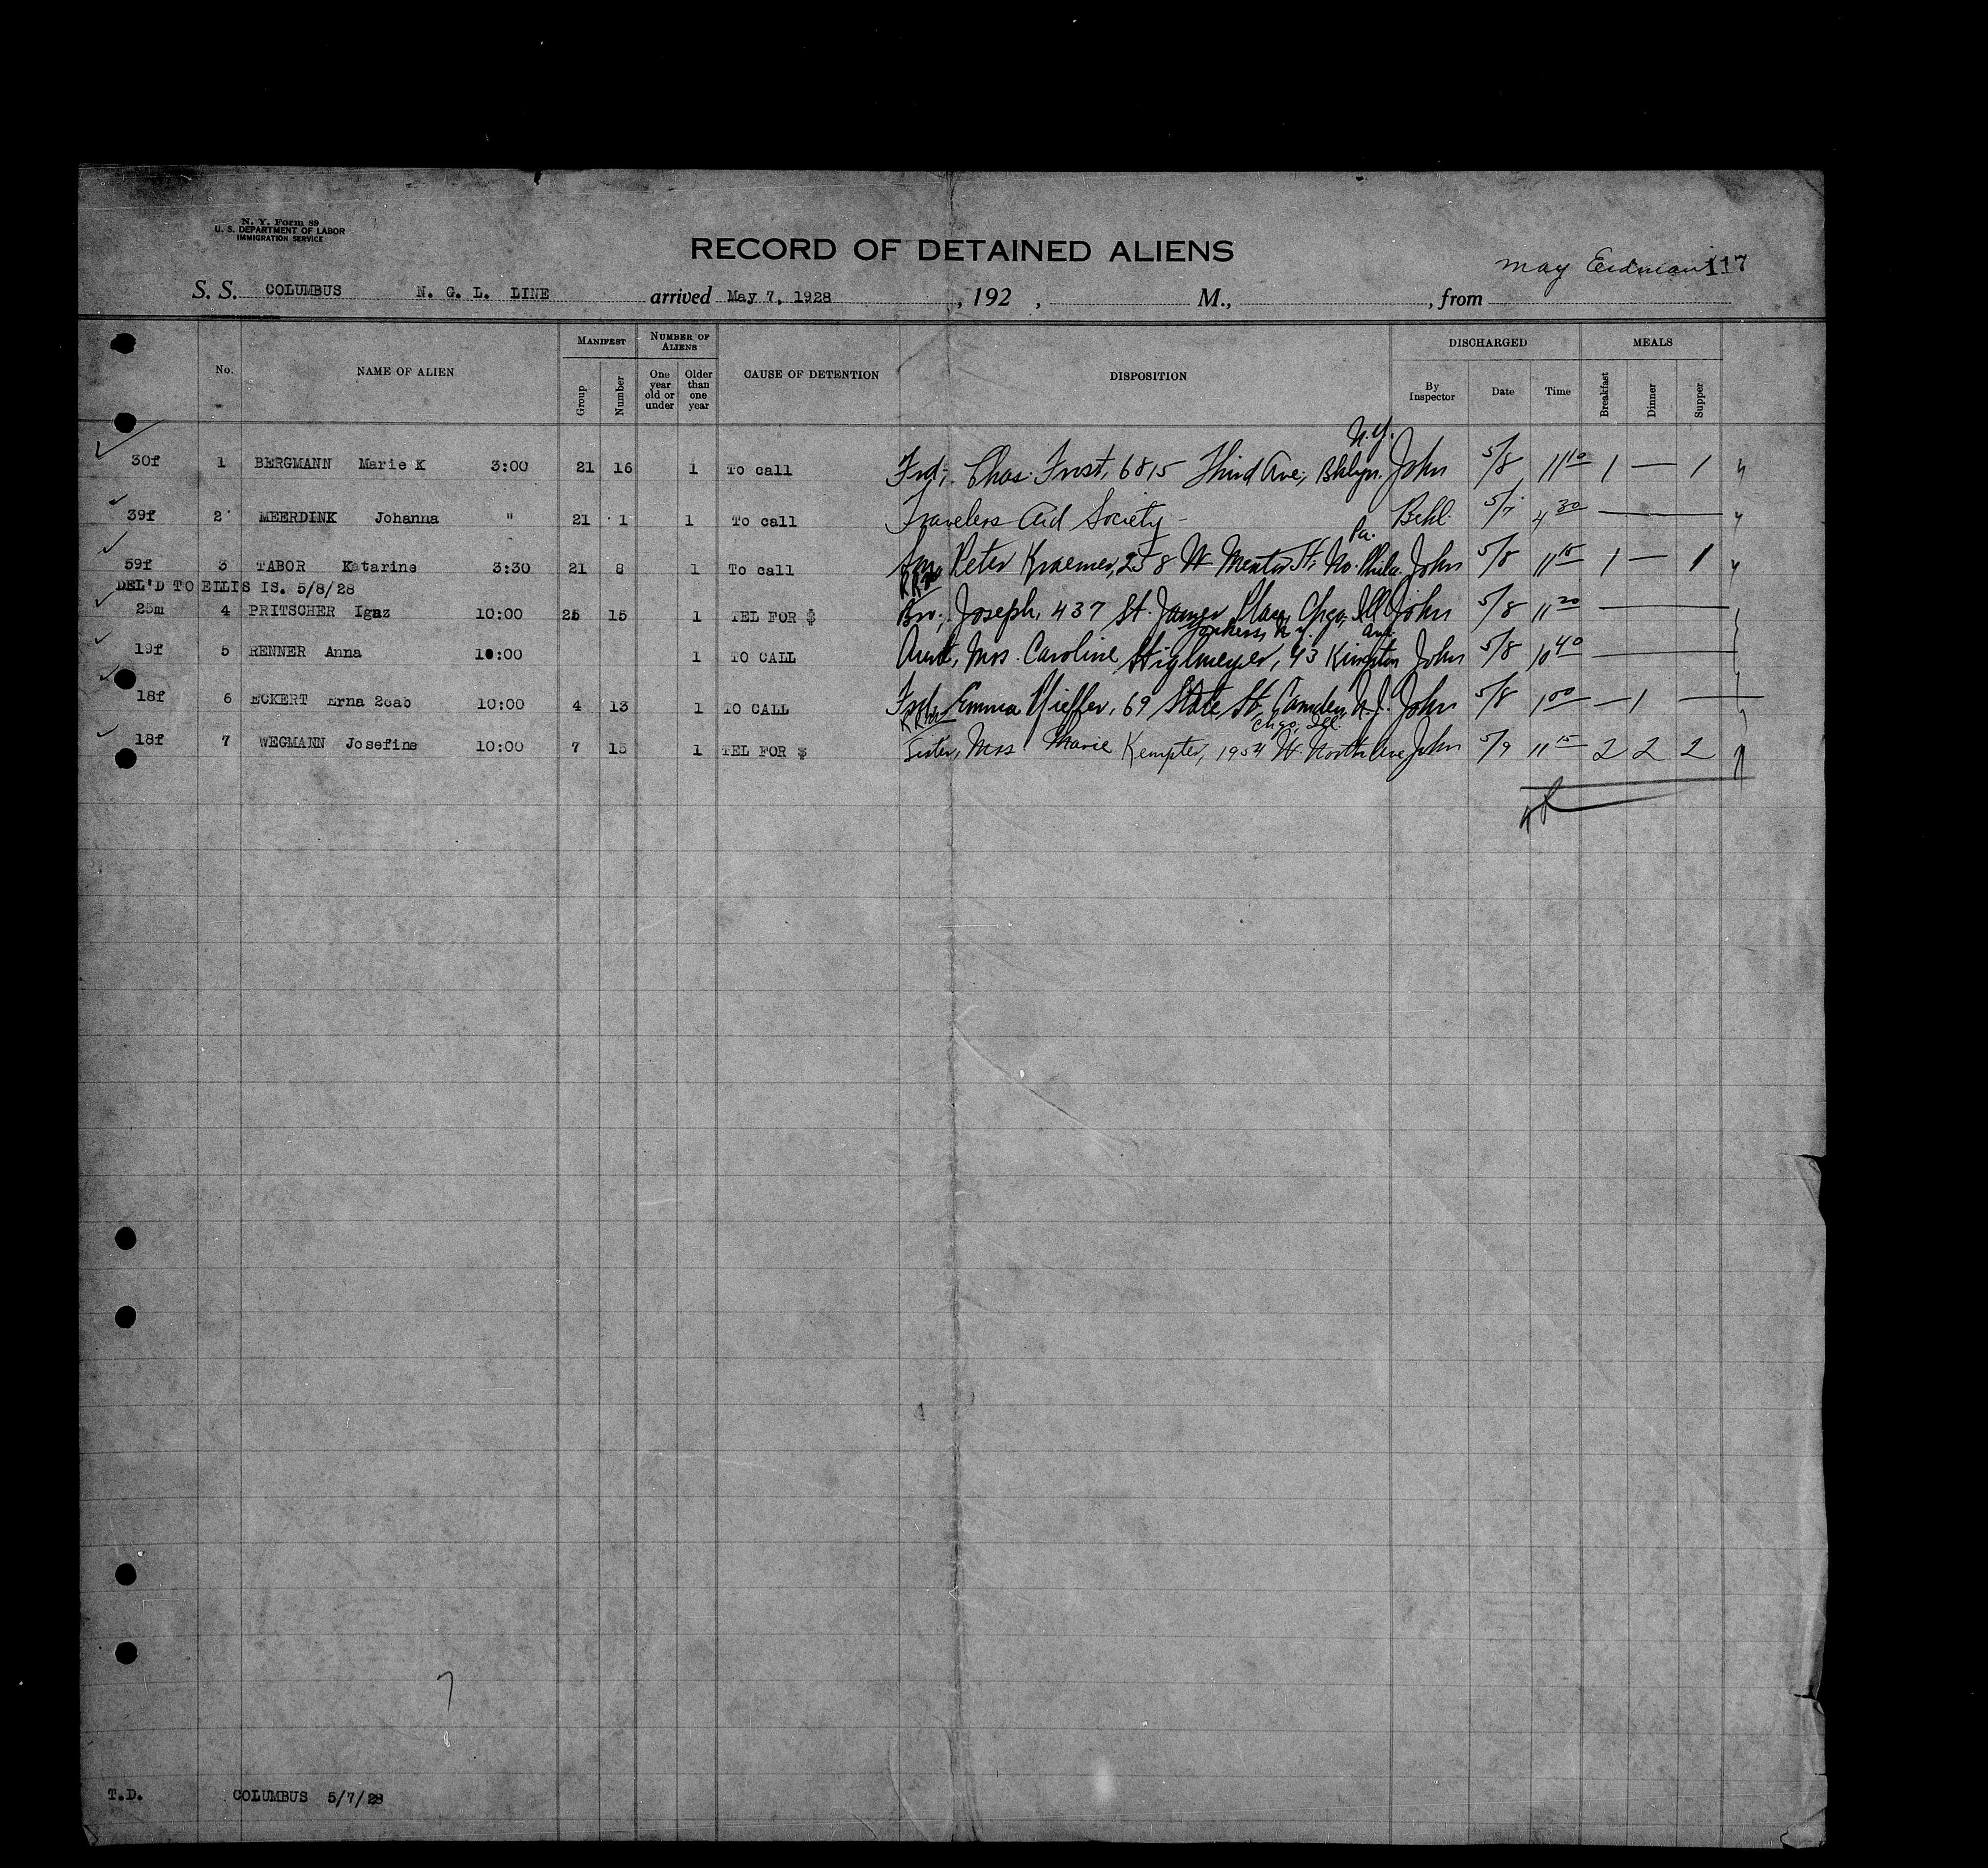 N. Y. Form 89
U. S. DEPARTMENT OF LABOR
IMMIGRATION SERVICE
RECORD OF DETAINED ALIENS
May Erdman 117
S. S. COLUMBUS N. G. L. LINE arrived May 7, 1928, 192 , M., , from
No. NAME OF ALIEN MANIFEST Group Number NUMBER OF ALIENS One year old or under Older than one year CAUSE OF DETENTION DISPOSITION DISCHARGED By Inspector Date Time MEALS Breakfast Dinner Supper
N.Y.
30f 1 BERGMANN Marie K 3:00 21 16 1 To call Frd; Chas. Frost, 6815 Third Ave, Bklyn. John 5/8 11 10 1 — 1
39f 2 MEERDINK Johanna " 21 1 1 To call Travelers Aid Society - Behl. 5/7 4 30 —
Pa.
59f 3 TABOR Katarine 3:30 21 8 1 To call Peter Kraemer, 258 W Mentor St. No. Phila. John 5/8 11 15 1 — 1
DEL'D TO ELLIS IS. 5/8/28
25m 4 PRITSCHER Igaz 10:00 25 15 1 TEL FOR $ Bro; Joseph, 437 St. James Place, Chgo, Ill John 5/8 11 20 —
Yonkers, N.Y. Ave.
19f 5 RENNER Anna 10:00 1 TO CALL Aunt, Mrs. Caroline Stiglmeyer, 43 John 5/8 10 40 —
18f 6 ECKERT Erna 2cab 10:00 4 13 1 TO CALL Emma 69 State St, Camden, N.J. John 5/8 1 00 — 1 —
Chgo, Ill.
18f 7 WEGMANN Josefine 10:00 7 15 1 TEL FOR $ Sister, Mrs Marie Kempter, 1954 W. North Ave John 5/9 11 15 2 2 2
7
T.D. COLUMBUS 5/7/28